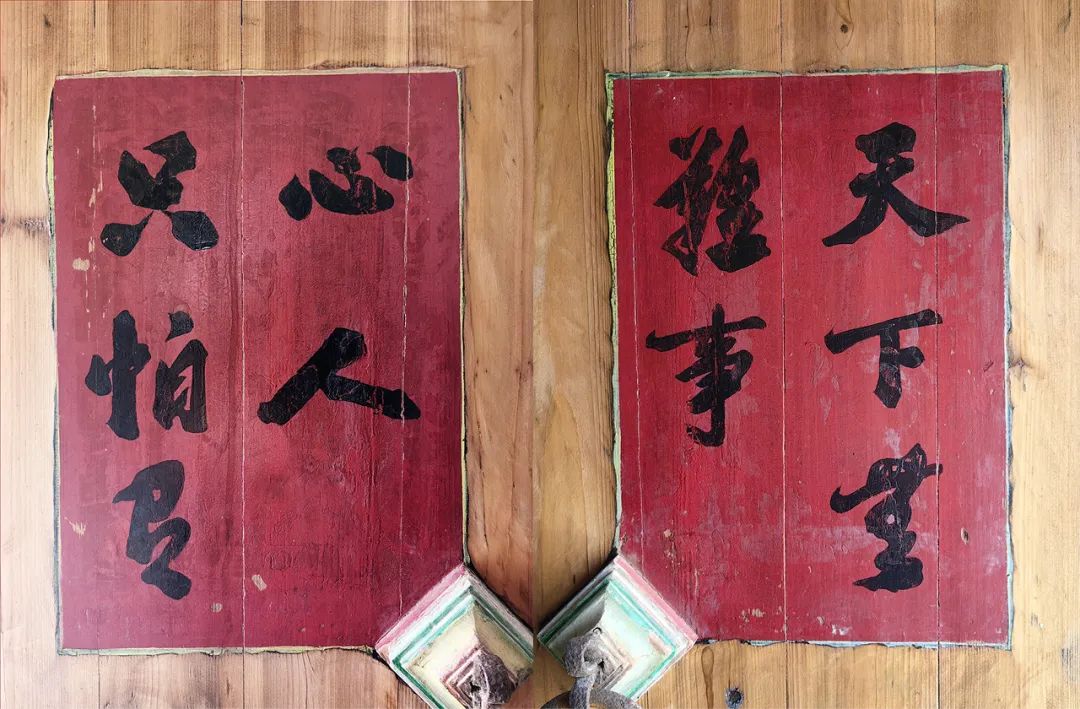 天下無
難事
只怕有
心人